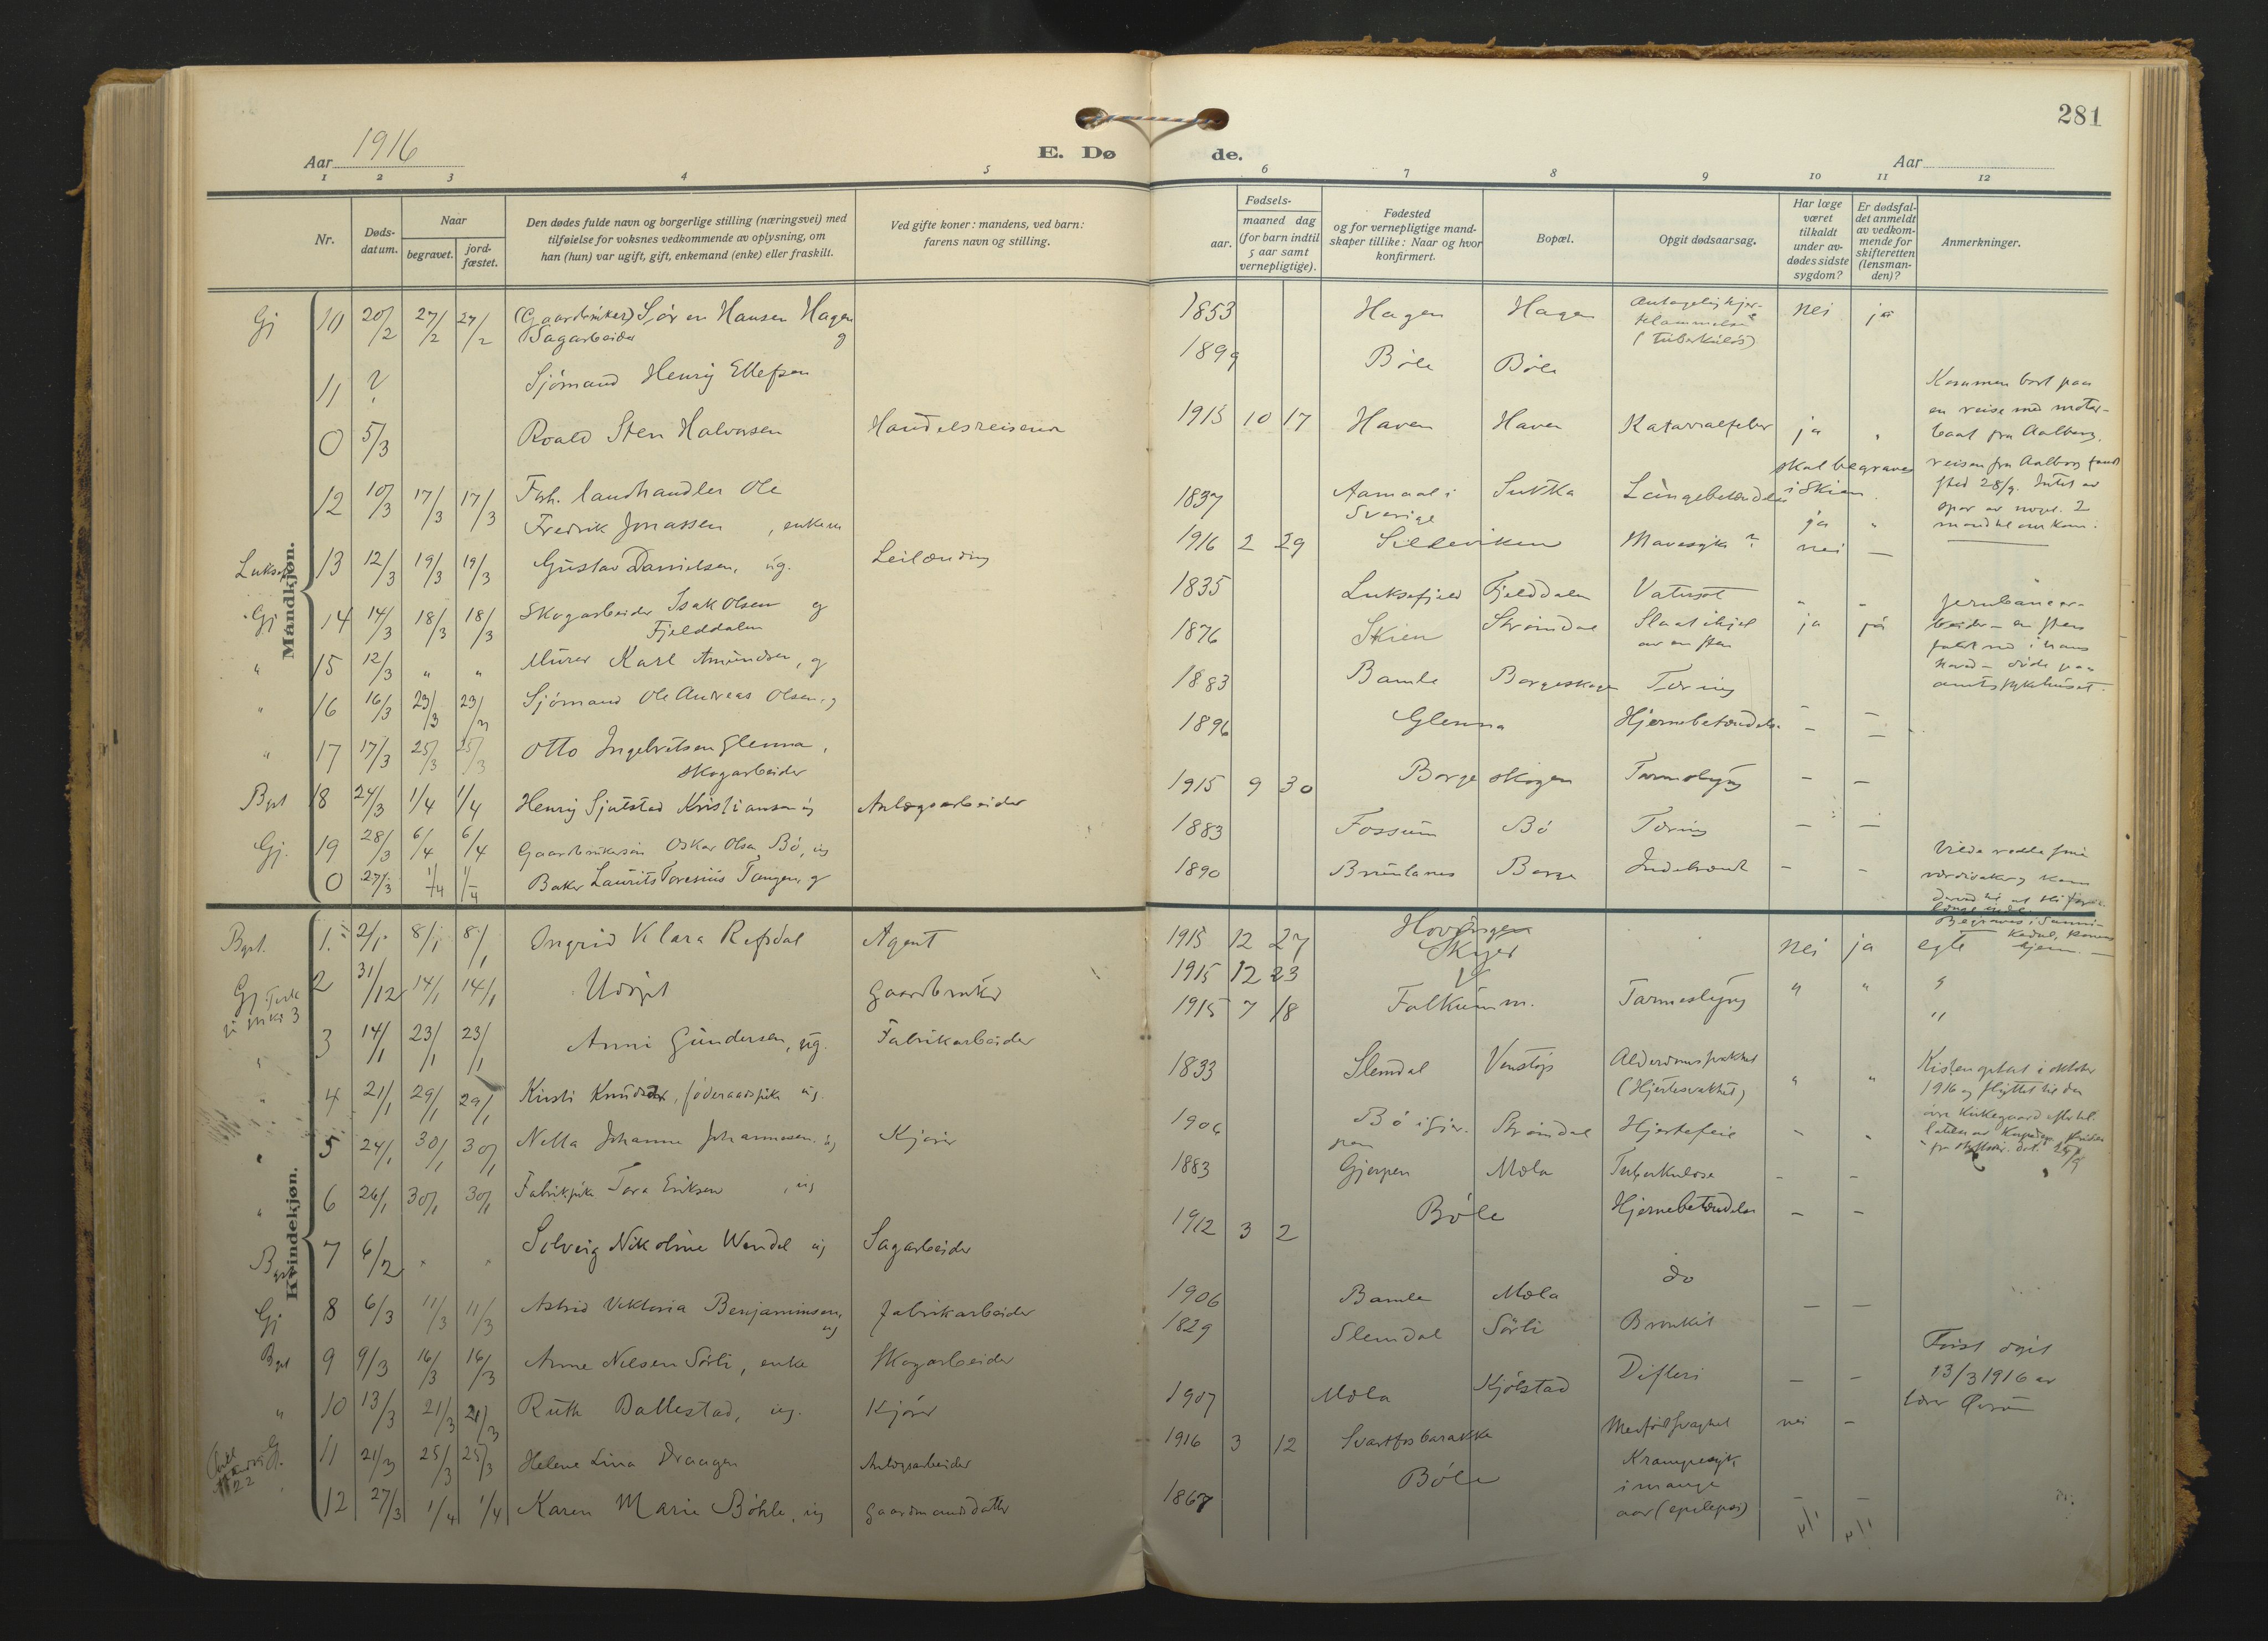 281
Aar 1916
E. Dø de.
Aar
1 2 3 4 5 6 7 8 9 10 11 12
Nr.
Døds-
datum.
Naar
begravet.
jord-
fæstet.
Den dødes fulde navn og borgerlige stilling (næringsvei) med
tilføielse for voksnes vedkommende av oplysning, om
han (hun) var ugift, gift, enkemand (enke) eller fraskilt.
Ved gifte koner: mandens, ved barn:
farens navn og stilling.
Fødsels-
aar.
maaned dag
(for barn indtil
5 aar samt
vernepligtige).
Fødested
og for vernepligtige mand-
skaper tillike: Naar og hvor
konfirmert.
Bopæl.
Opgit dødsaarsag.
Har læge
været
tilkaldt
under av-
dødes sidste
sygdom?
Er dødsfal-
det anmeldt
av vedkom-
mende for
skifteretten
(lensman-
den)?
Anmerkninger.
Mandkjøn.
Gj 10 20/2 27/2 27/2 (Gaardbruker) Søren Hansen Hagen 1853 Hagen Hagen Antagelig hjer- nei ja
Sagarbeider g
(Tuberkuløs)
11 ? Sjømand Henry Ellefsen 1899 Bøle Bøle
Kommen bort paa
en reise med motor-
baat fra Aalborg.
0 5/3 Roald Sten Halvorsen Handelsreisende 1915 10 17 Haven Haven Katarralfeber ja "
skal begraves
i Skien.
reisen fra Aalborg fandt
sted 28/9. Intet
spor av noget. 2
mand
12 10/3 17/3 17/3 Forh. landhandler Ole 1837 Aamaal i Sukka Lungebetændelse ja "
Fredrik Jonassen, enkem Sverige
Luksefj 13 12/3 19/3 19/3 Gustav Danielsen, ug. Leilænding 1916 2 29 Sildeviken Mavesyke? nei —
Gj 14 14/3 18/3 18/3 Skogarbeider Isak Olsen g 1835 Luksefjeld Fjelddalen Vatersot " "
Fjelddalen
" 15 12/3 " " Murer Karl Amundsen, g 1876 Skien Strømdal Slaat ihjel ja ja
av en sten
Jernbanear-
beider – en sten
faldt ned i hans
hoved – døde paa
amtssykehuset.
" 16 16/3 23/3 23/3 Sjømand Ole Andreas Olsen, g 1883 Bamle Borgeskogen Tæring — —
" 17 17/3 25/3 25/3 Otto Ingebretsen Glenna, 1896 Glenna Hjernebetændelse — —
skogarbeider
Bgst 18 24/3 1/4 1/4 Henry Sjulstad Kristiansen ug Anlægsarbeider 1915 9 30 Borgeskogen Tarmslyng — —
Gj. 19 28/3 6/4 6/4 Gaardbrukersøn Oskar Olsen Bø, ug 1883 Fossum Bø Tæring — —
0 27/3 1/4 1/4 Baker Laurits Toresius Tangen, g 1890 Brunlanes Borge Indebrændt — —
Vilde redde sine
værdisaker og kom
Begraves i Sanni-
kedal, konens
hjem. —
Kvindekjøn.
Bgst. 1. 2/1 8/1 8/1 Ingrid Klara Refsdal Agent 1915 12 27 Hovdingen nei ja egte
Gj 2 31/12 14/1 14/1 Udøpt Gaardbruker 1915 12 23 Skyer " " "
3 14/1 23/1 23/1 Anni Gundersen, ug. Fabrikarbeider 1915 7 18 Falkum m. Tarmeslyng "
" 4 21/1 29/1 29/1 Kirsti Knudsdtr, føderaadspike ug. 1833 Slemdal Venstøp Alderdomssvakhet " "
(Hjertesvakhet)
Kisten optat i oktober
1916 og flyttet til den
øvre Kirkegaard efter til-
latelse av
" 5 24/1 30/1 30/1 Nella Johanne Johannesen. ug Kjører 1904 Bø i Gjer- Strømdal Hjertefeil - "
pen
" 6 26/1 30/1 30/1 Fabrikpike Tora Eriksen, ug 1883 Gjerpen Mæla Tuberkulose - -
Bgst 7 6/2 " " Solveig Nikoline Wendel ug Sagarbeider 1912 3 2 Bøle Hjernebetændelse — —
Gj 8 6/3 11/3 11/3 Astrid Viktoria Benjaminsen, Fabrikarbeider 1906 Bamle Mæla do — —
ug
Bgst 9 9/3 16/3 16/3 Anne Nilsen Sørli, enke Skogarbeider 1829 Slemdal Sørli Bronkit
" 10 13/3 21/3 21/3 Ruth Ballestad, ug. Kjører 1907 Mæla Kjølstad Difteri — —
Gj. 11 21/3 25/3 25/3 Helene Lina Draagen Anlægsarbeider 1916 3 12 Svartfosbarakke Medfødt svaghet nei —
Først døpt
13/3 1916 av
12 27/3 1/4 1/4 Karen Marie Bøhle, ug gaardmandsdatter 1867 Bøle Krampesyk — —
i mange
aar (epilepsi)